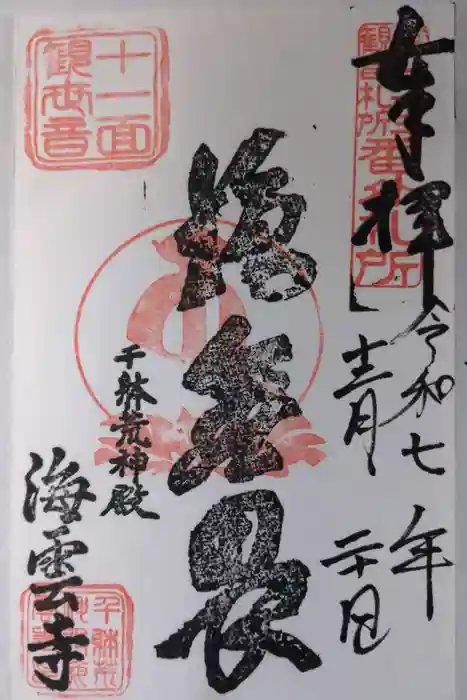 奉拝
観音札所
番外札所
令和七年
十二月二十日
十一面
観世音
施無畏
千躰荒神殿
海雲寺